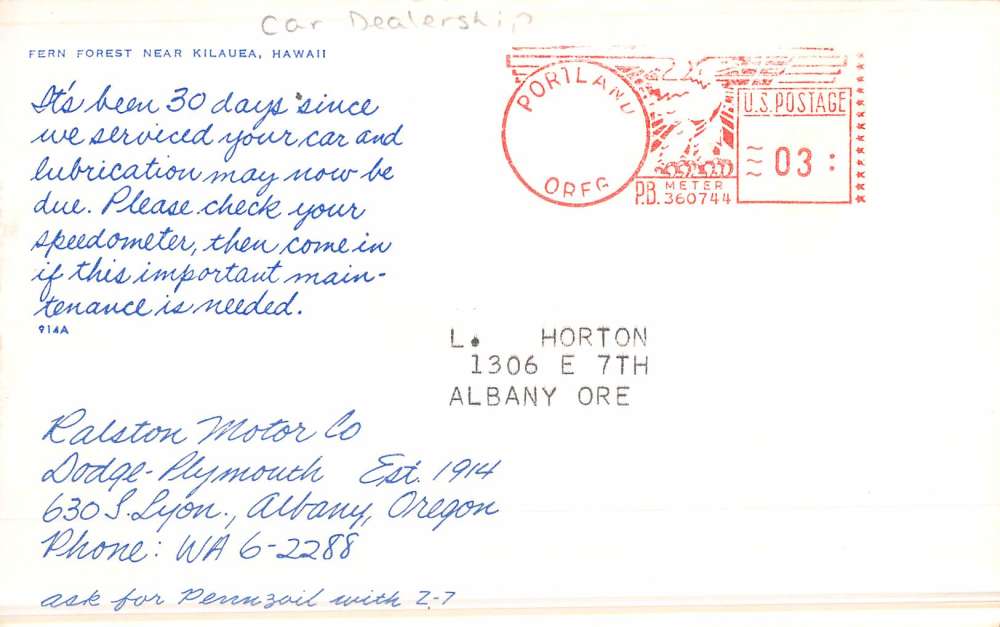 Car Dealership
FERN FOREST NEAR KILAUEA, HAWAII
It's been 30 days since
we serviced your car and
lubrication may now be
due. Please check your
speedometer, then come in
if this important main-
tenance is needed.
914A
PORTLAND
OREG
U.S. POSTAGE
03
P.B. METER
360744
L. HORTON
1306 E 7TH
ALBANY ORE
Ralston Motor Co
Dodge-Plymouth Est. 1914
630 S. Lyon., Albany, Oregon
Phone: WA 6-2288
ask for Pennzoil with Z-7